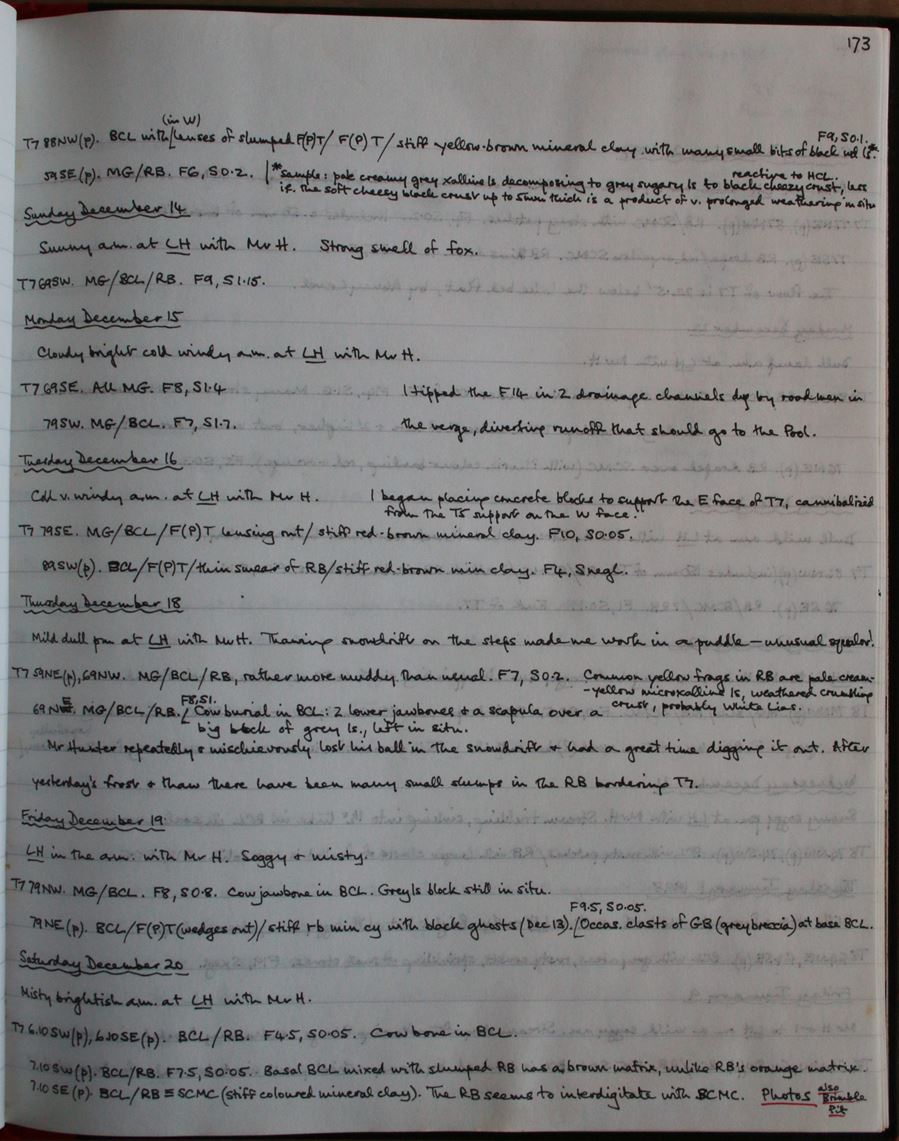 173
(in W)
F9, S0.1.
T7 88NW(p). BCL with lenses of slumped F(P)T/ F(P)T/ stiff yellow-brown mineral clay with many small bits of black wd ls*.
59SE(p). MG/RB. F6, S0.2. *sample: pale creamy grey xalline ls decomposing to grey sugary ls to black cheezy crust, less reactive to HCL.
if. the soft cheesy black crust up to 5mm thick is a product of v. prolonged weathering in situ
Sunday December 14
Sunny a.m. at LH with Mr H. Strong smell of fox.
T7 69SW. MG/BCL/RB. F9, S1.15.
Monday December 15
Cloudy bright cold windy a.m. at LH with Mr H.
T7 69SE. All MG. F8, S1.4 I tipped the F14 in 2 drainage channels dug by roadmen in
79SW. MG/BCL. F7, S1.7. the verge, diverting runoff that should go to the Pool.
Tuesday December 16
Cold v. windy a.m. at LH with Mr H. I began placing concrete blocks to support the E face of T7, cannibalized
from the T5 support on the W face.
T7 79SE. MG/BCL/F(P)T lensing out/ stiff red-brown mineral clay. F10, S0.05.
89SW(p). BCL/F(P)T/thin smear of RB/stiff red-brown min clay. F4, Snegl.
Thursday December 18
Mild dull pm at LH with Mr H. Thawing snowdrift on the steps made me work in a puddle – unusual squalor!
T7 59NE(p), 69NW. MG/BCL/RB, rather more muddy than usual. F7, S0.2. Common yellow frags in RB are pale cream-
-yellow microxalline ls, weathered crumbling
crust, probably White Lias.
69NE. MG/BCL/RB. F8, S1. Cow burial in BCL: 2 lower jawbones + a scapula over a
big block of grey ls., left in situ.
Mr Hunter repeatedly & mischievously lost his ball in the snowdrift + had a great time digging it out. After
yesterday's frost + thaw there have been many small slumps in the RB bordering T7.
Friday December 19
LH in the a.m. with Mr H. Soggy + misty.
T7 79NW. MG/BCL. F8, S0.8. Cow jawbone in BCL. Grey ls block still in situ.
F9.5, S0.05.
79NE(p). BCL/F(P)T (wedges out)/ stiff r-b min cy with black ghosts (Dec 13). Occas. clasts of GB (grey breccia) at base BCL.
Saturday December 20
Misty brightish a.m. at LH with Mr H.
T7 6.10SW(p), 6.10SE(p). BCL/RB. F4.5, S0.05. Cow bone in BCL.
7.10SW(p). BCL/RB. F7.5, S0.05. Basal BCL mixed with slumped RB has a brown matrix, unlike RB's orange matrix.
7.10SE(p). BCL/RB ≡ SCMC (stiff coloured mineral clay). The RB seems to interdigitate with SCMC. Photos also
Brimble
Pit